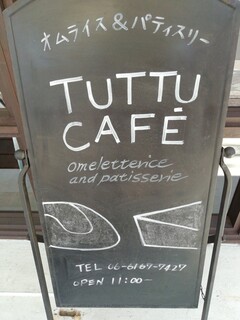 オムライス&パティスリー
TUTTU
CAFÉ
omeletterice
and patisserie
TEL 06-6167-7427
OPEN 11:00-